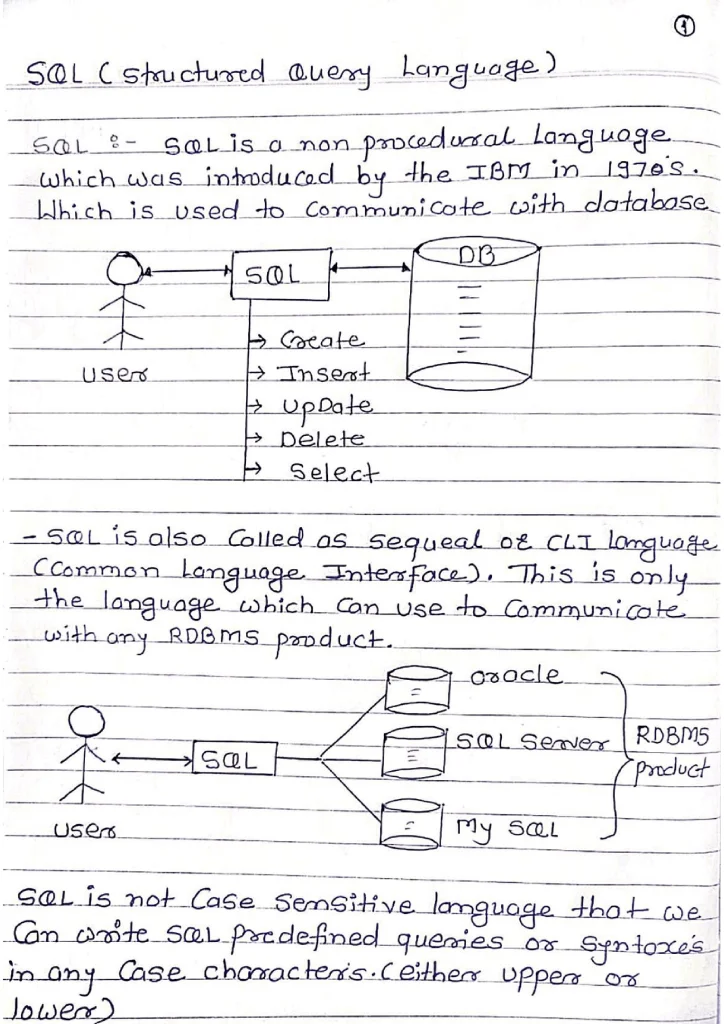 1
SQL (structured Query Language)
SQL :- SQL is a non procedural Language
which was introduced by the IBM in 1970's.
Which is used to Communicate with database
DB
SQL
→ Create
user
→ Insert
→ UpDate
→ Delete
→ Select
- SQL is also Called as sequeal or CLI language
(Common Language Interface). This is only
the language which Can use to Communicate
with any RDBMS product.
oracle
SQL Server
RDBMS
SQL
product
user
My SQL
SQL is not Case Sensitive language that we
Can write SQL predefined queries or Syntaxe's
in any Case character's. (either upper or
lower)